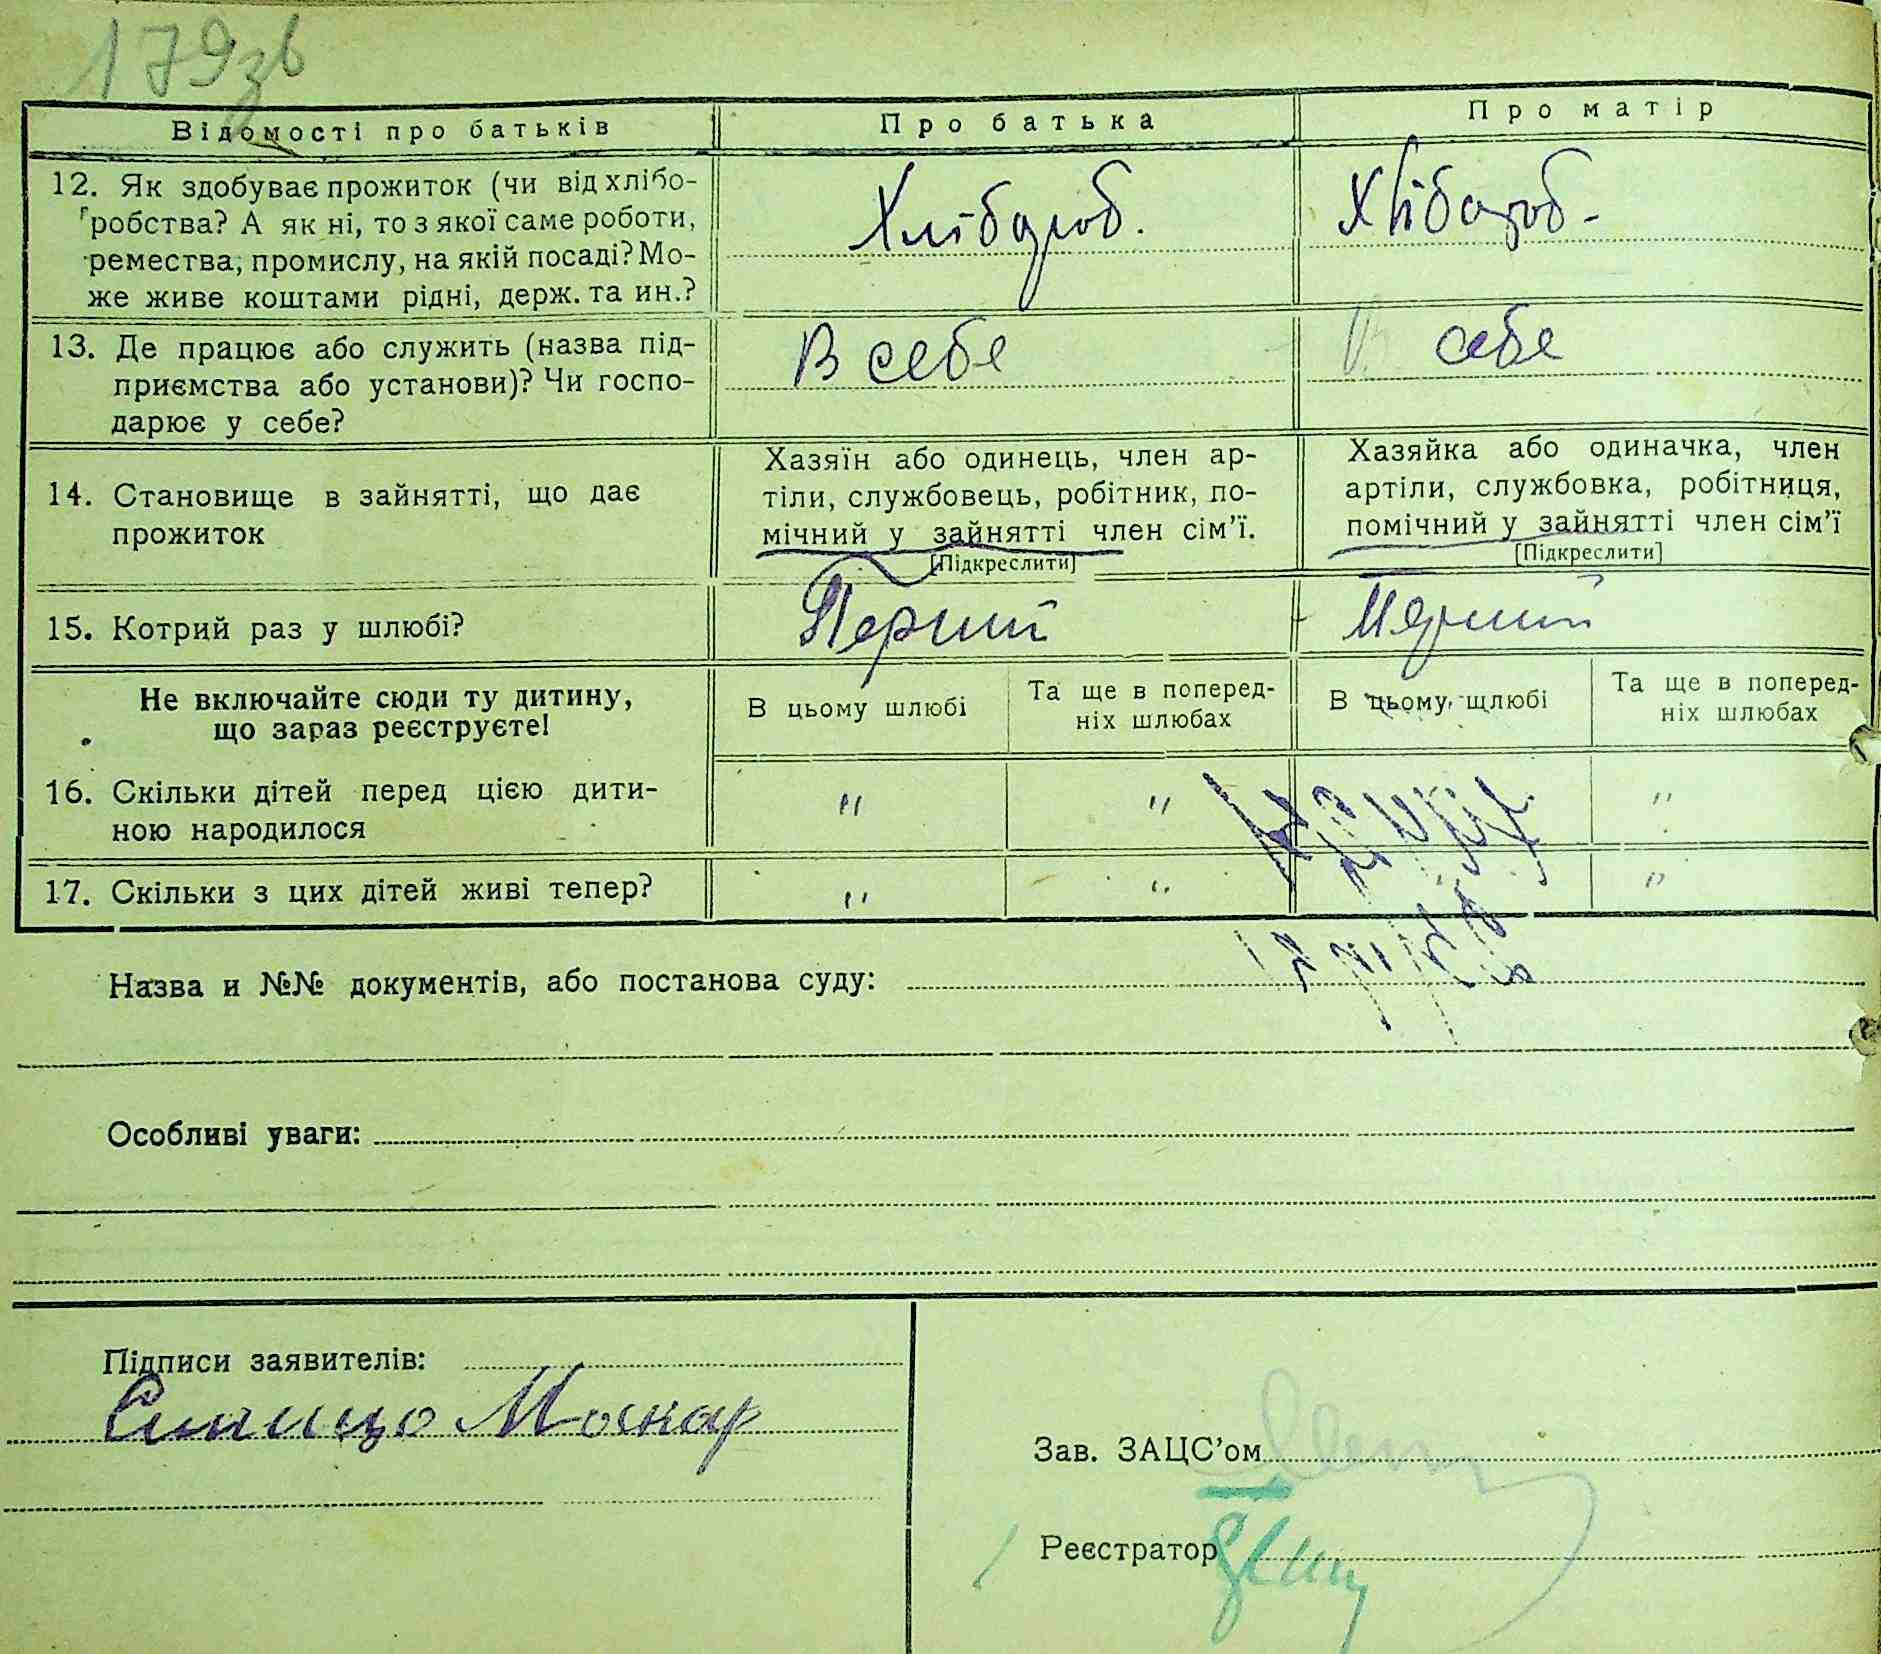 179зв
Відомості про батьків
Про батька
Про матір
12. Як здобуває прожиток (чи від хлібо-
робства? А як ні, то з якої саме роботи,
ремества, промислу, на якій посаді? Мо-
же живе коштами рідні, держ. та ин.?
Хлібороб.
Хлібороб-
13. Де працює або служить (назва під-
приємства або установи)? Чи госпо-
дарює у себе?
В себе
В себе
14. Становище в зайнятті, що дає
прожиток
Хазяїн або одинець, член ар-
тіли, службовець, робітник, по-
мічний у зайнятті член сім'ї.
[Підкреслити]
Хазяйка або одиначка, член
артіли, службовка, робітниця,
помічний у зайнятті член сім'ї
[Підкреслити]
15. Котрий раз у шлюбі?
Перший
Перший
Не включайте сюди ту дитину,
що зараз реєструєте!
В цьому шлюбі
Та ще в поперед-
ніх шлюбах
В цьому шлюбі
Та ще в поперед-
ніх шлюбах
16. Скільки дітей перед цією дити-
ною народилося
"
"
"
17. Скільки з цих дітей живі тепер?
"
"
"
Назва и №№ документів, або постанова суду:
Особливі уваги:
Підписи заявителів:
Макар
Зав. ЗАЦС'ом
Реєстратор